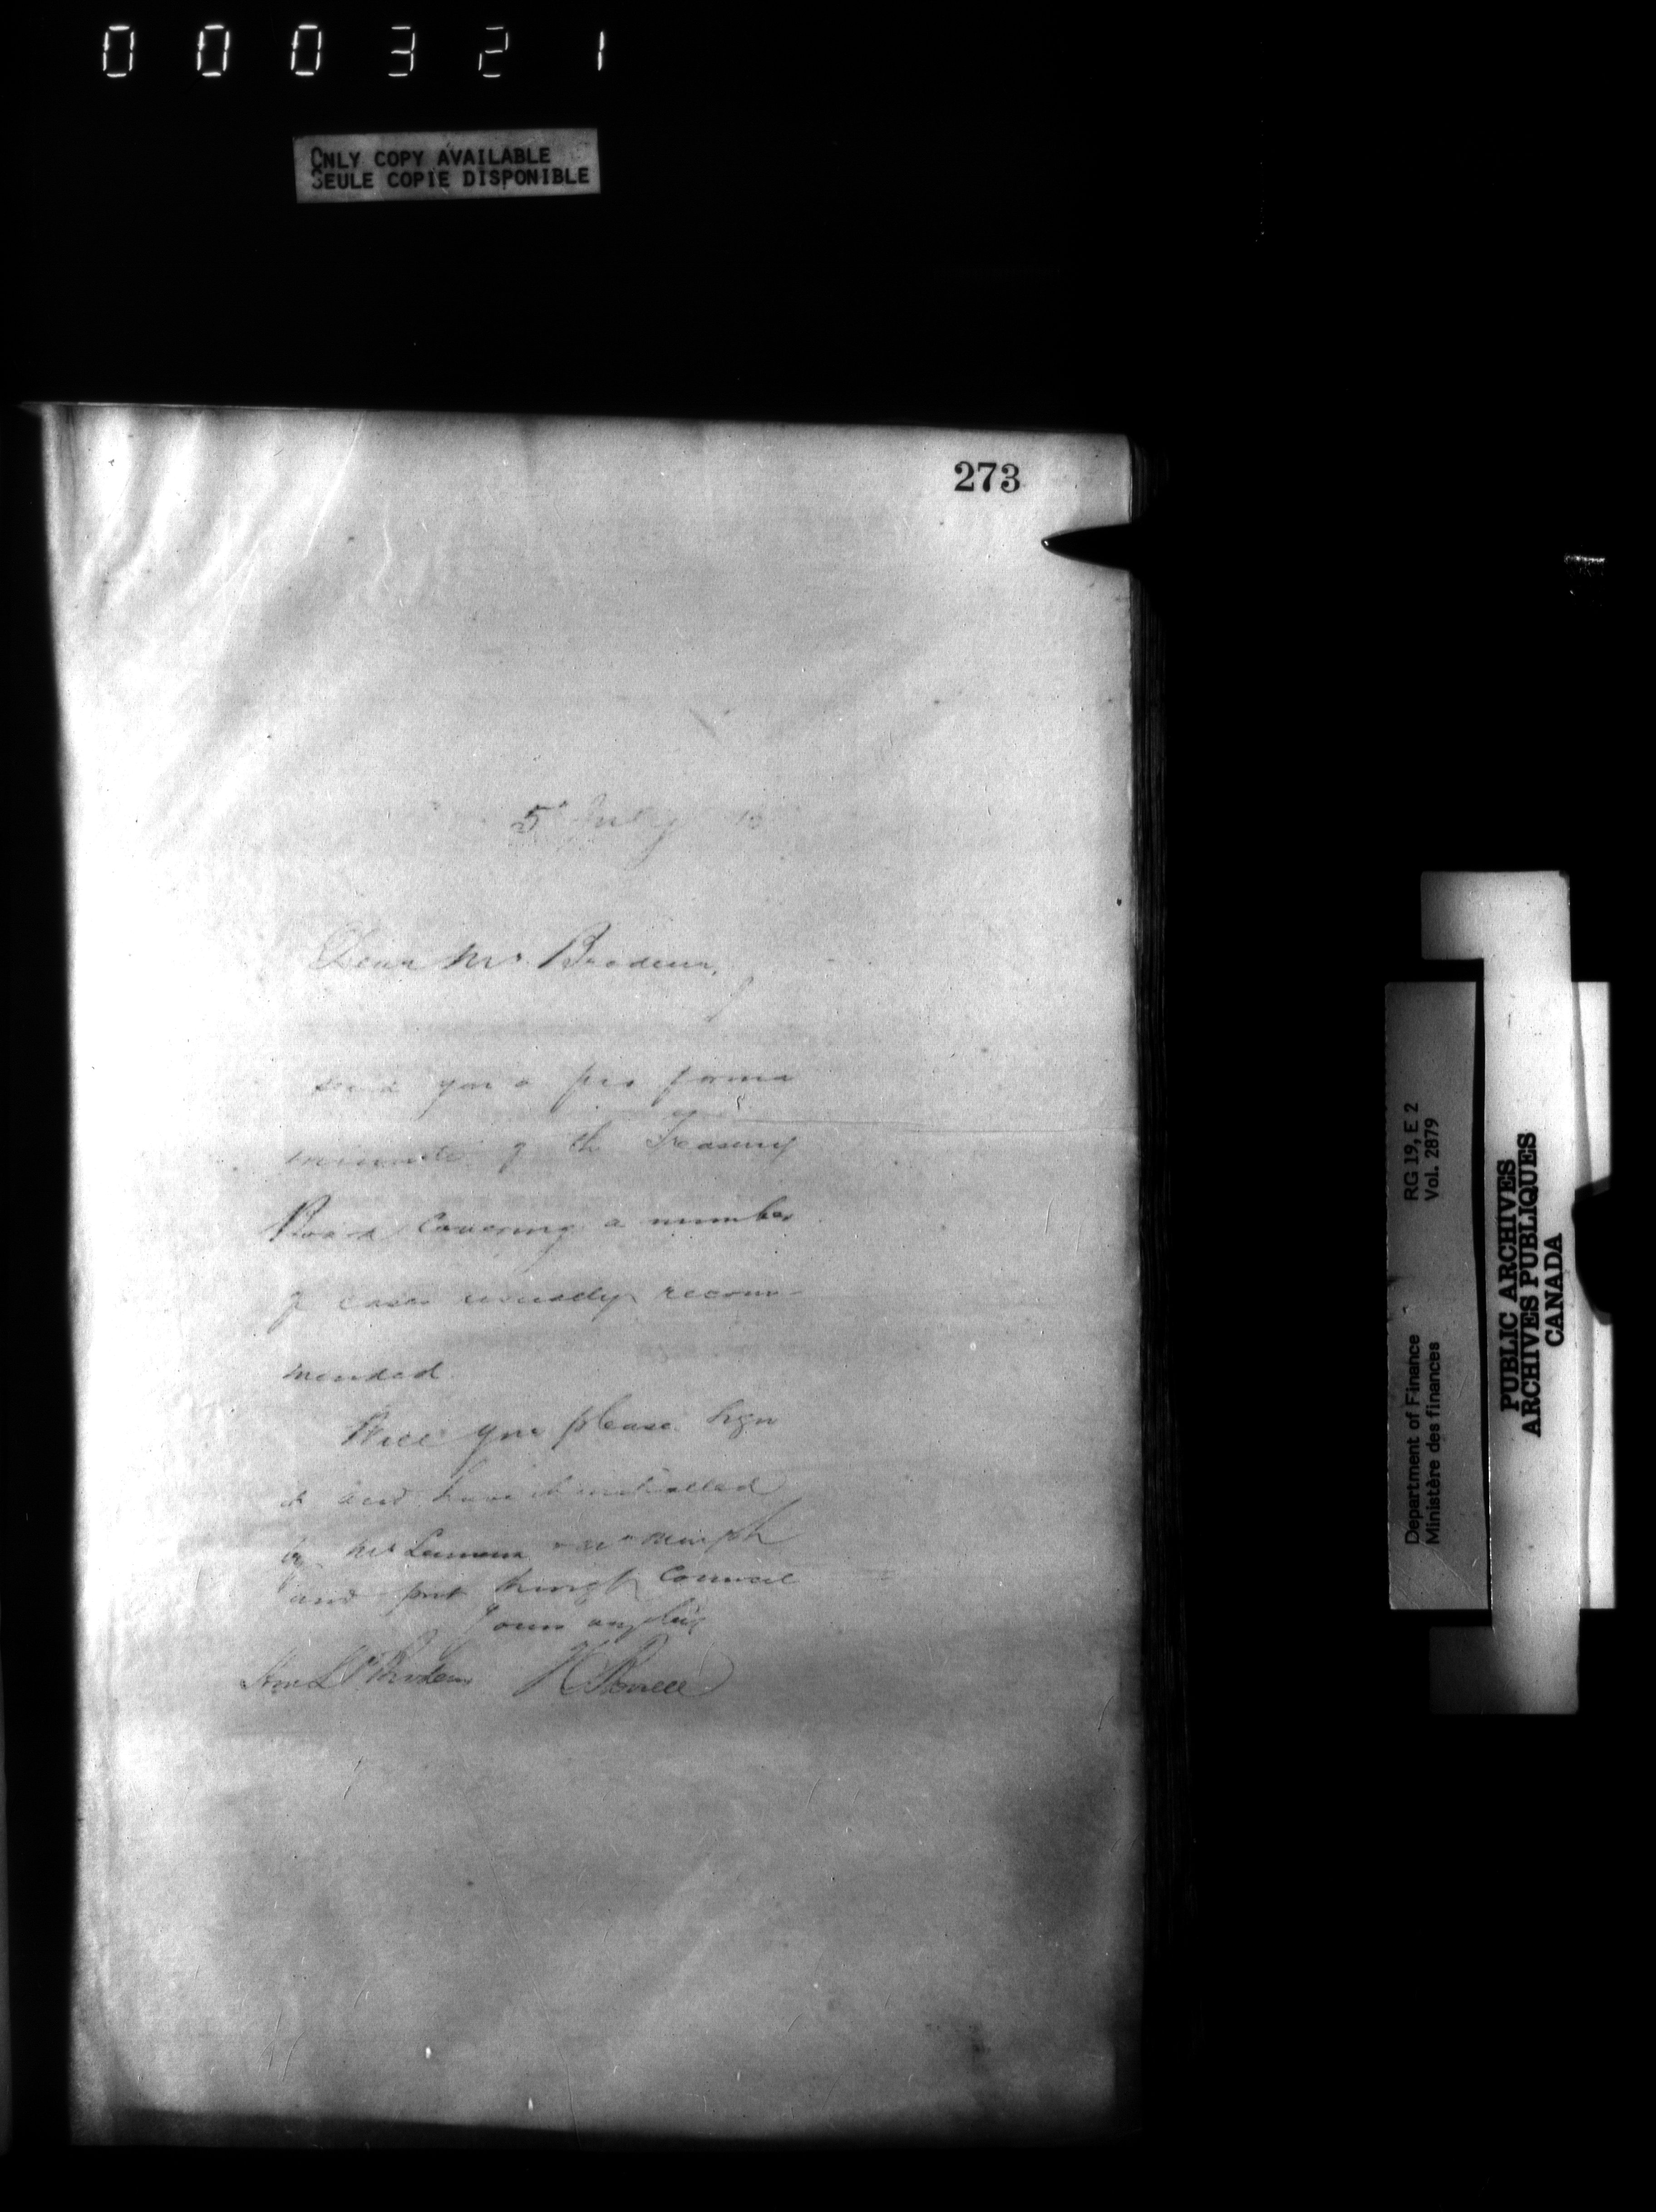 000321
ONLY COPY AVAILABLE
SEULE COPIE DISPONIBLE
273
5 July
Dear Mr. Brodeur,
I
send you a pro forma
minute of the Treasury
Board Covering a number
of cases usually recom-
mended.
Will you please sign
it and have it initialled
by Mr
and put through Council
Yours
Hon L P Brodeur
Department of Finance
Ministère des finances
RG 19, E 2
Vol. 2879
PUBLIC ARCHIVES
ARCHIVES PUBLIQUES
CANADA